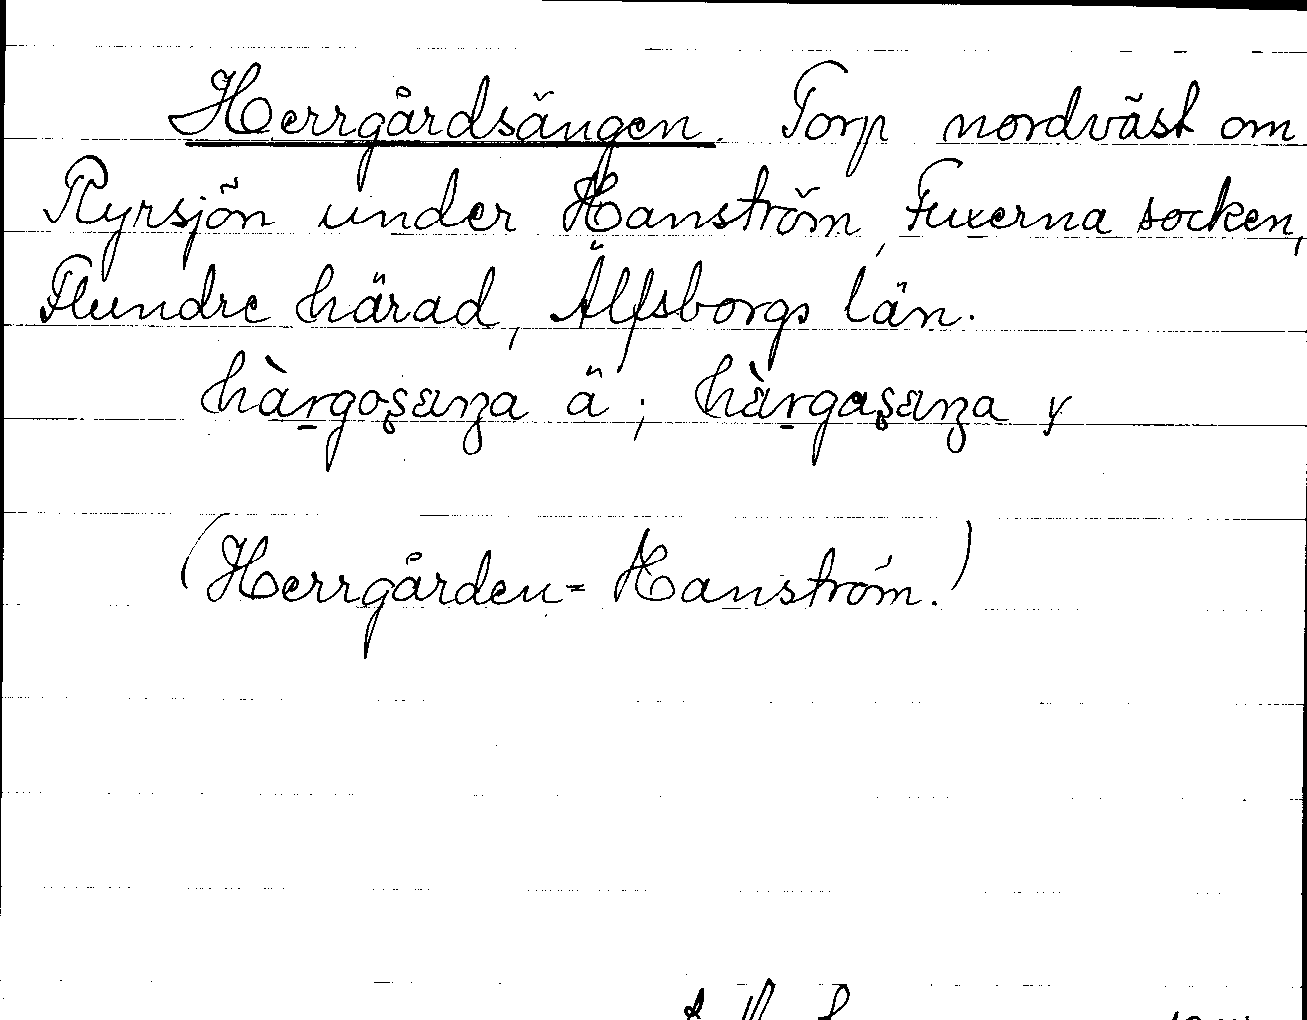 Herrgårdsängen. Torp nordväst om
Ryrsjön under Hanström, Fuxerna socken,
Flundre härad, Älfsborgs län.
ä; y
(Herrgården = Hanström.)